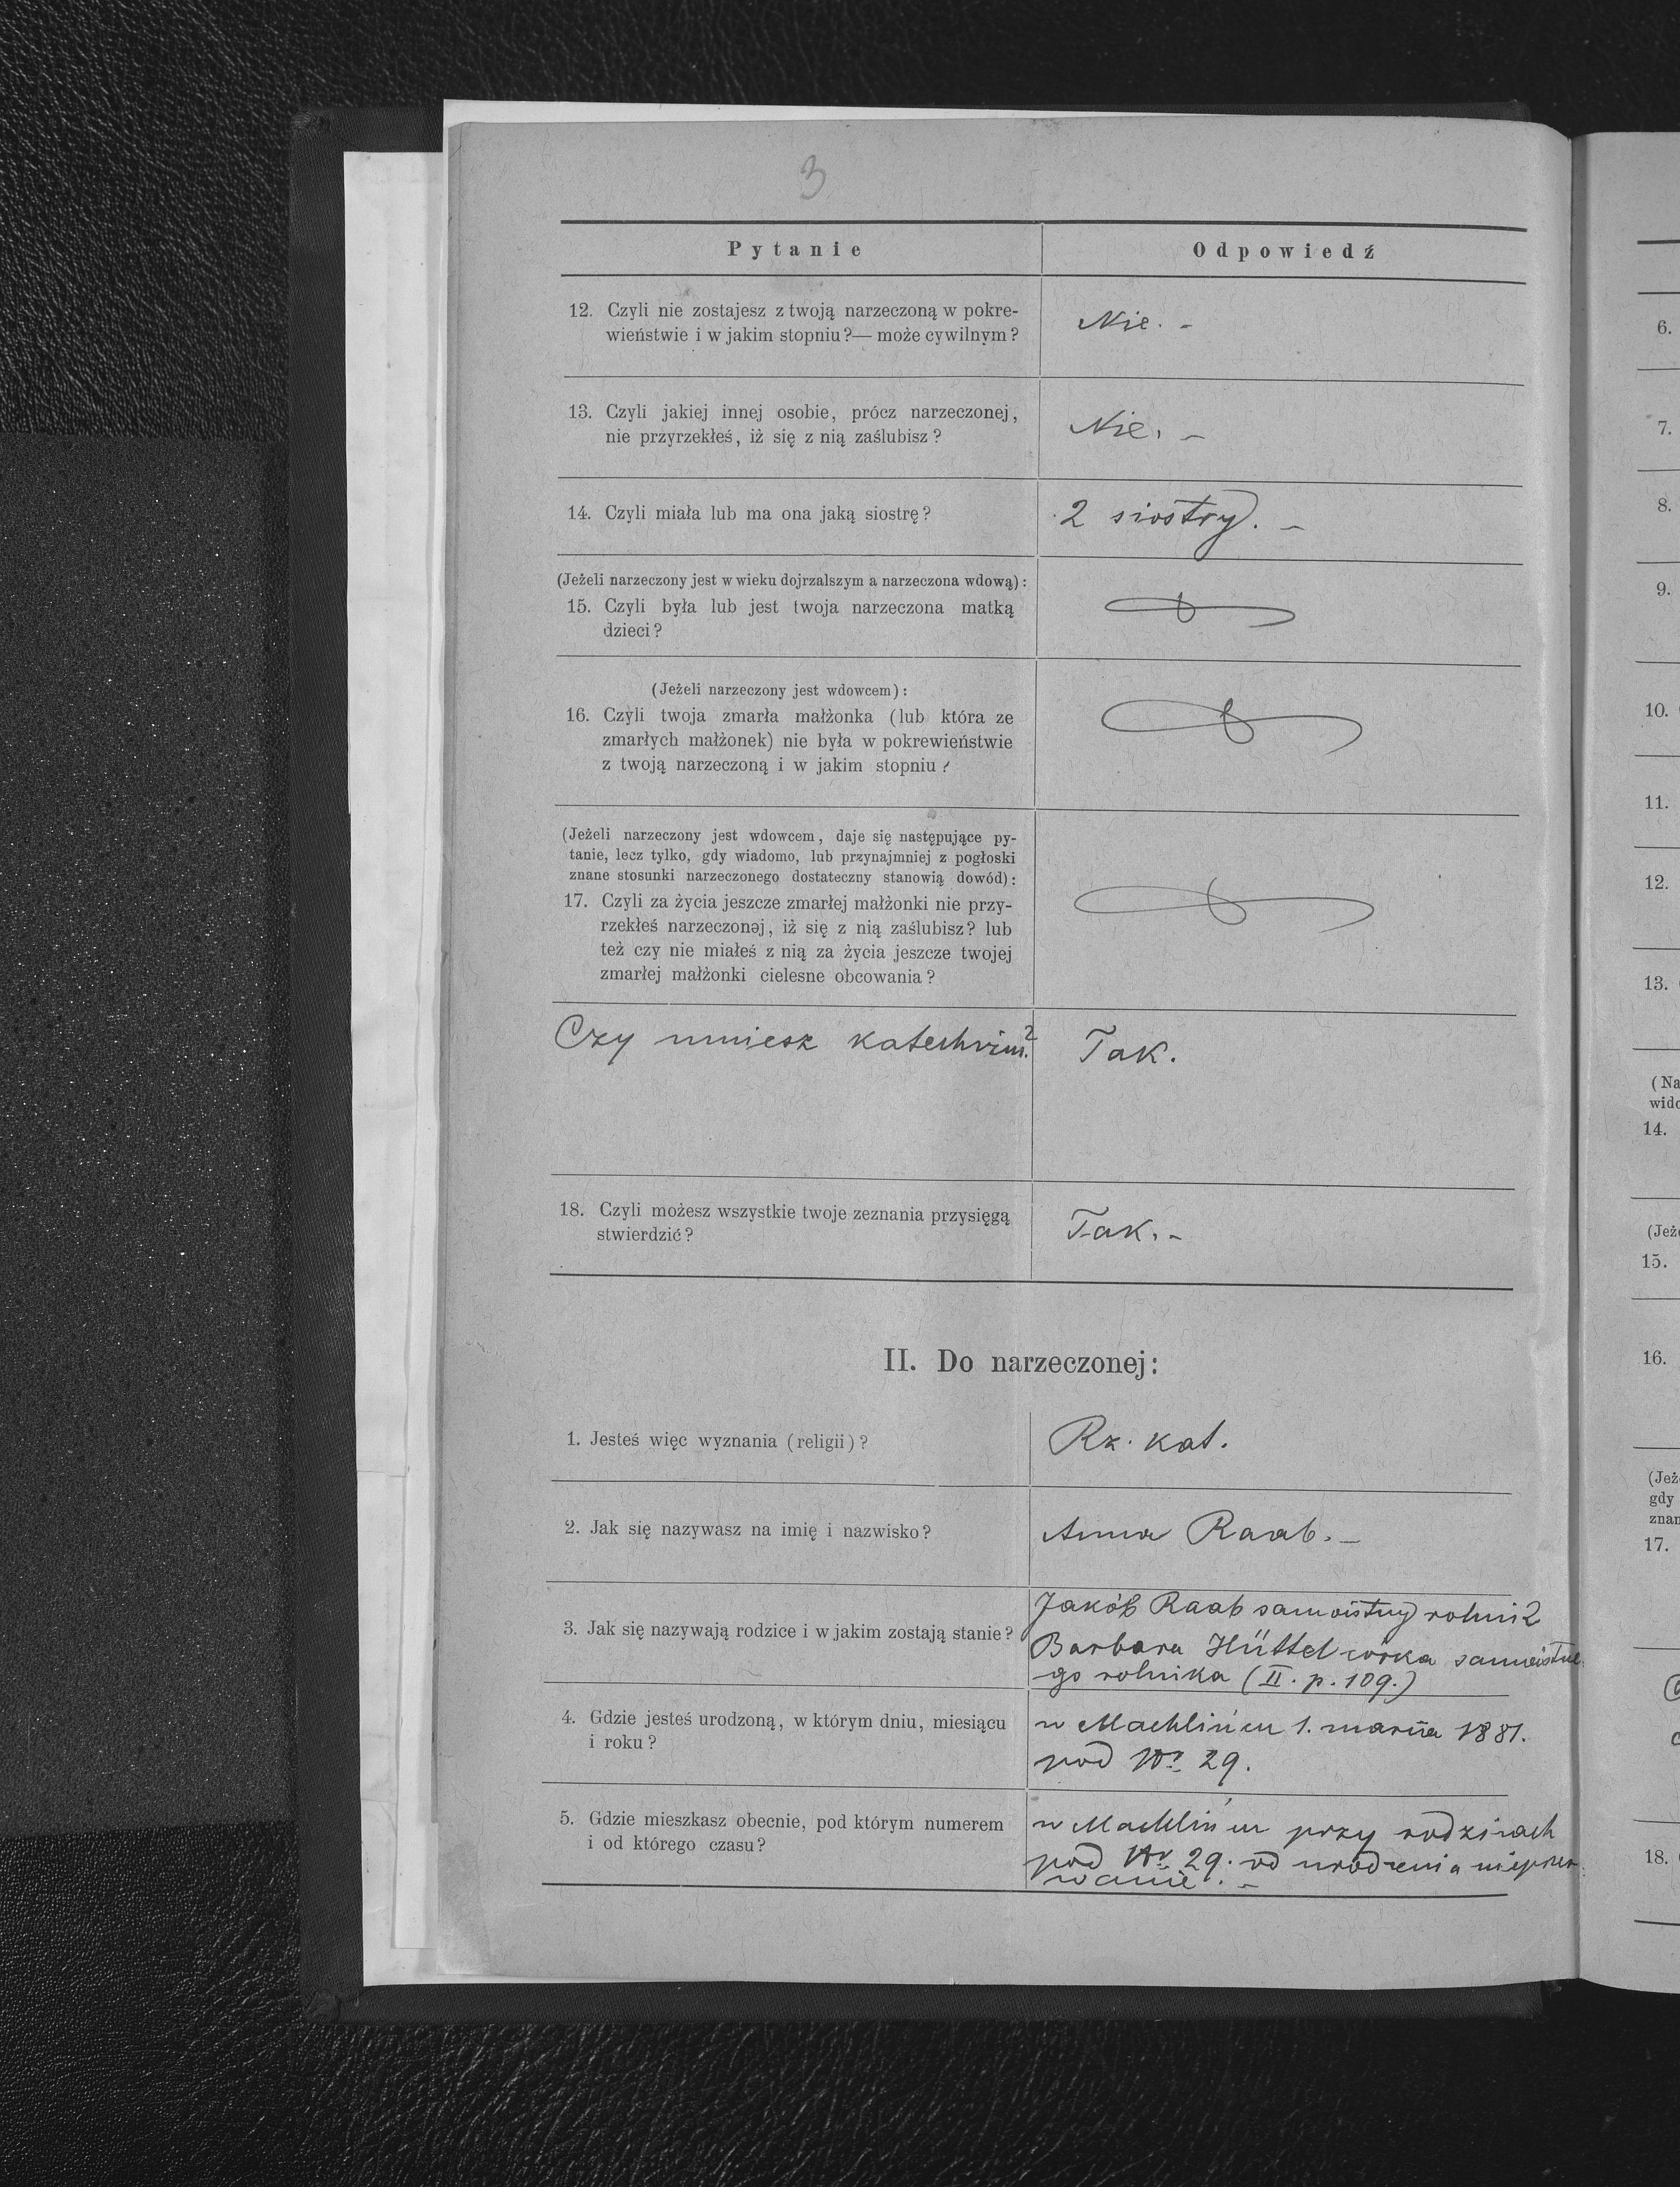 3
Pytanie
Odpowiedź
12. Czyli nie zostajesz z twoją narzeczoną w pokre-
wieństwie i w jakim stopniu?— może cywilnym?
Nie. -
13. Czyli jakiej innej osobie, prócz narzeczonej,
nie przyrzekłeś, iż się z nią zaślubisz?
Nie. -
14. Czyli miała lub ma ona jaką siostrę?
2 siostry. -
(Jeżeli narzeczony jest w wieku dojrzalszym a narzeczona wdową):
15. Czyli była lub jest twoja narzeczona matką
dzieci?
(Jeżeli narzeczony jest wdowcem):
16. Czyli twoja zmarła małżonka (lub która ze
zmarłych małżonek) nie była w pokrewieństwie
z twoją narzeczoną i w jakim stopniu?
(Jeżeli narzeczony jest wdowcem, daje się następujące py-
tanie, lecz tylko, gdy wiadomo, lub przynajmniej z pogłoski
znane stosunki narzeczonego dostateczny stanowią dowód):
17. Czyli za życia jeszcze zmarłej małżonki nie przy-
rzekłeś narzeczonej, iż się z nią zaślubisz? lub
też czy nie miałeś z nią za życia jeszcze twojej
zmarłej małżonki cielesne obcowania?
Czy umiesz katechizm?
Tak.
18. Czyli możesz wszystkie twoje zeznania przysięgą
stwierdzić?
Tak. -
II. Do narzeczonej:
1. Jesteś więc wyznania (religii)?
Rz. kat.
2. Jak się nazywasz na imię i nazwisko?
Anna Raab. -
3. Jak się nazywają rodzice i w jakim zostają stanie?
Jakób Raab samoistny rolnik
Barbara Hüttel córka samoistne
go rolnika (II. p. 109.)
4. Gdzie jesteś urodzoną, w którym dniu, miesiącu
i roku?
w Machlińcu 1. marca 1881.
pod Nr 29.
5. Gdzie mieszkasz obecnie, pod którym numerem
i od którego czasu?
w Machlińcu przy rodzicach
pod Nr 29. od urodzenia nieprzer
wanie. -
6.
7.
8.
9.
10.
11.
12.
13.
(Na
wido
14.
(Jeże
15.
16.
(Jeż
gdy
znan
17.
18.